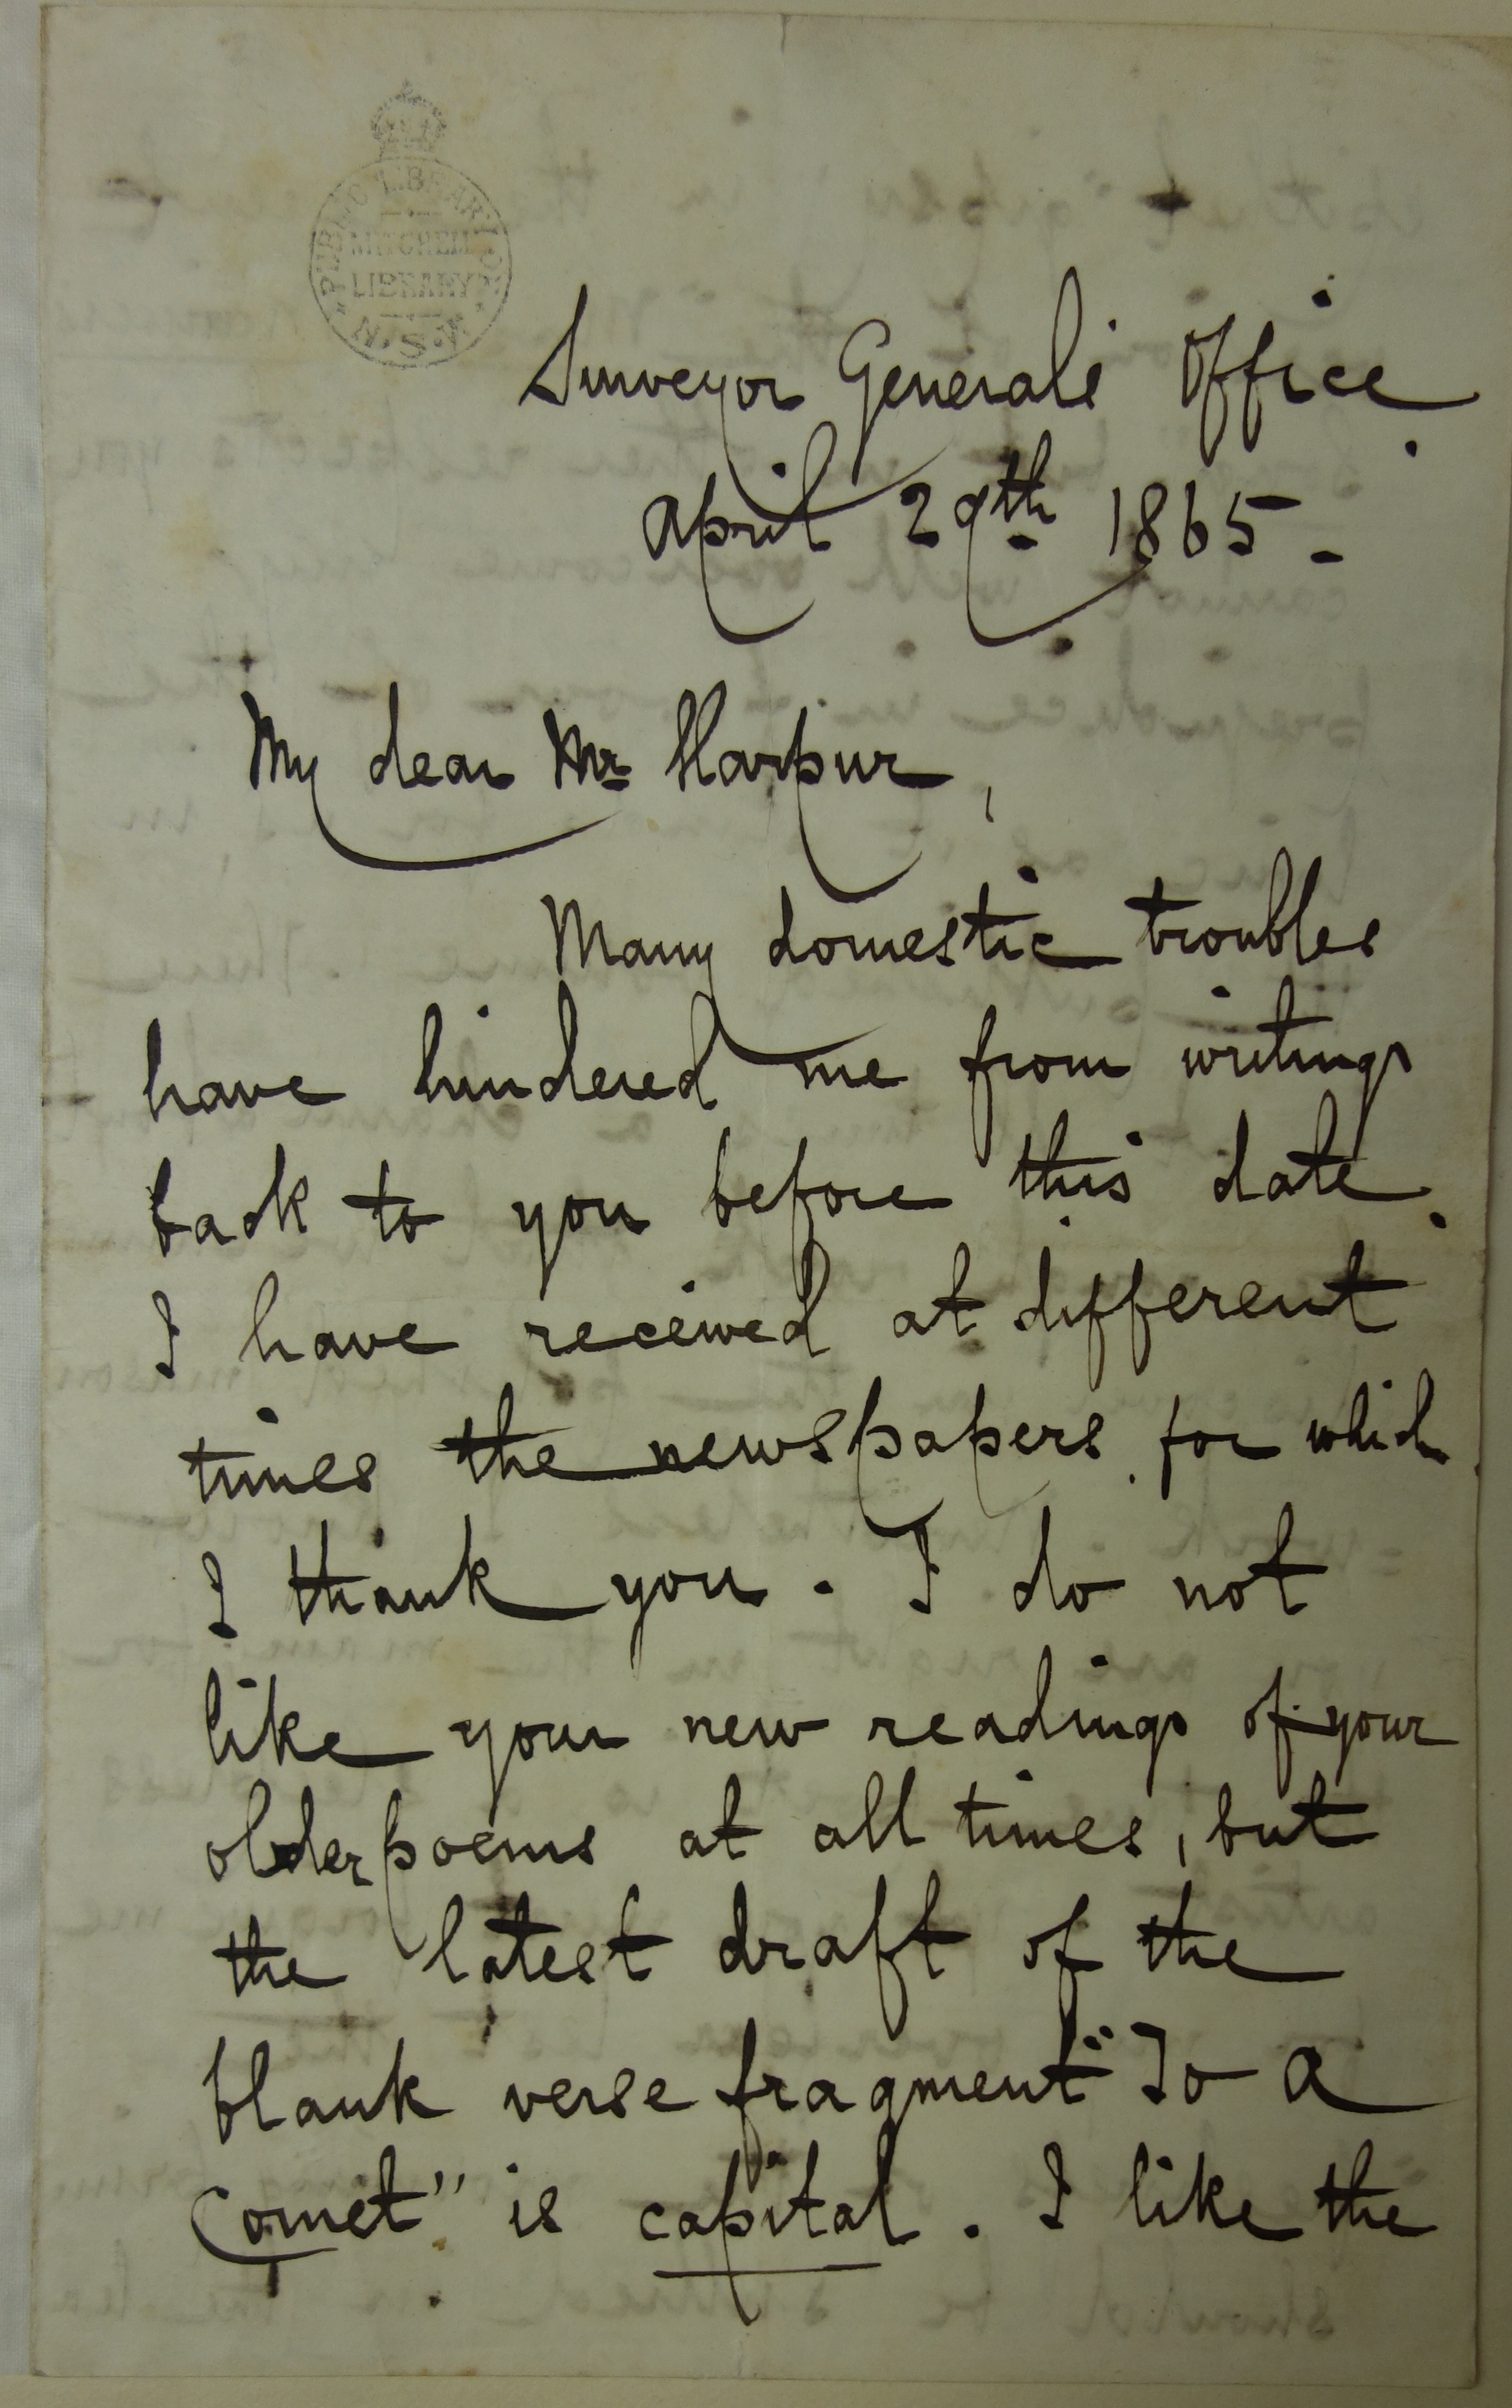 PUBLIC LIBRARY OF N.S.W.
MITCHELL
LIBRARY
Surveyor Generals' Office.
April 29th 1865 -
My dear Mr Harpur,
Many domestic troubles
have hindered me from writing
back to you before this date.
I have received at different
times the newspapers, for which
I thank you. I do not
like your new readings of your
older poems at all times, but
the latest draft of the
blank verse fragment "To a
Comet" is capital. I like the